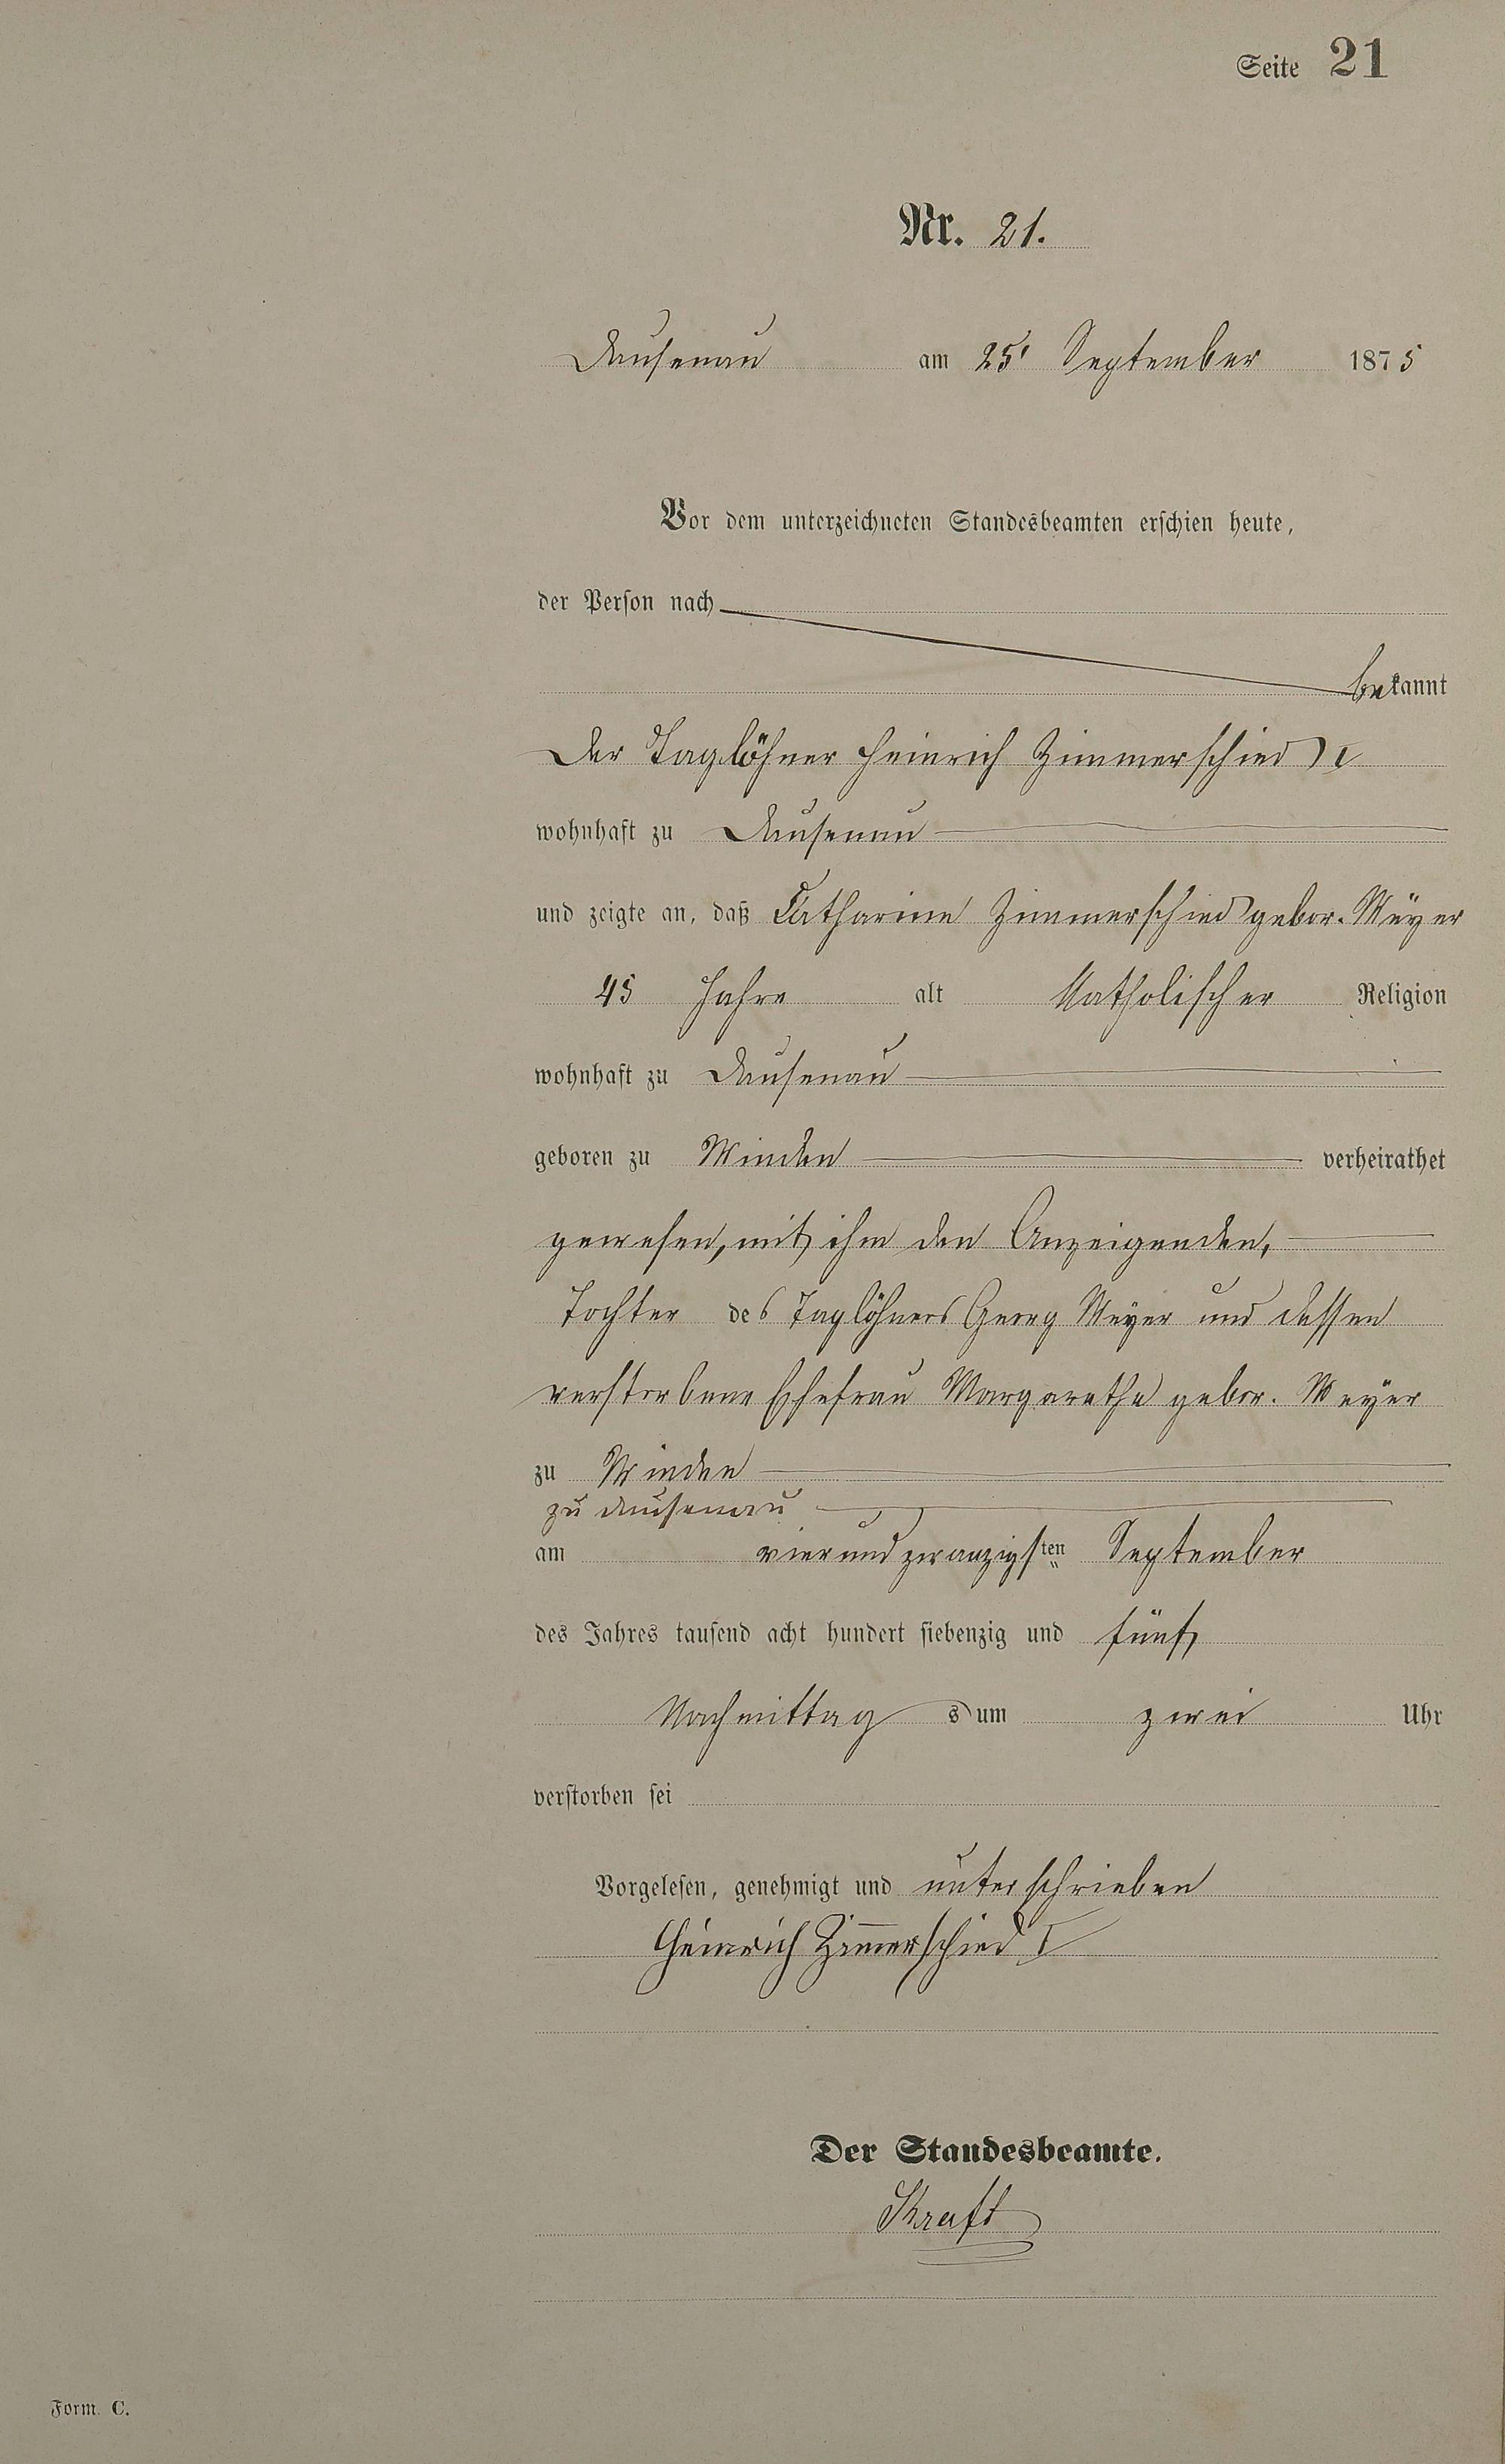 Seite 21
Nr. 21.
Dausenau am 25' September 1875
Vor dem unterzeichneten Standesbeamten erschien heute,
der Person nach
bekannt
Der Taglöhner Heinrich Zimmerschied I
wohnhaft zu Dausenau
und zeigte an, daß Catharine Zimmerschied gebor. Meÿer
45 Jahre alt Katholischer Religion
wohnhaft zu Dausenau
geboren zu Winden verheirathet
gewesen, mit ihm den Anzeigenden,
Tochter des Taglöhners Georg Meÿer und dessen
verstorbene Ehefrau Margarethe gebor. Meÿer
zu Winden
zu Dausenau
am vierundzwanzigsten September
des Jahres tausend acht hundert siebenzig und fünf
Nachmittags um zwei Uhr
verstorben sei
Vorgelesen, genehmigt und unterschrieben
Heinrich Zimmerschied I
Der Standesbeamte.
Kraft
Form. C.